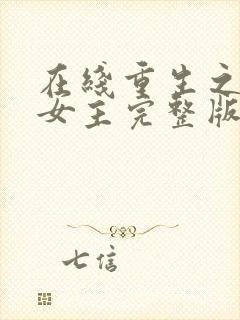 在綫重生之
女主完整版
七信